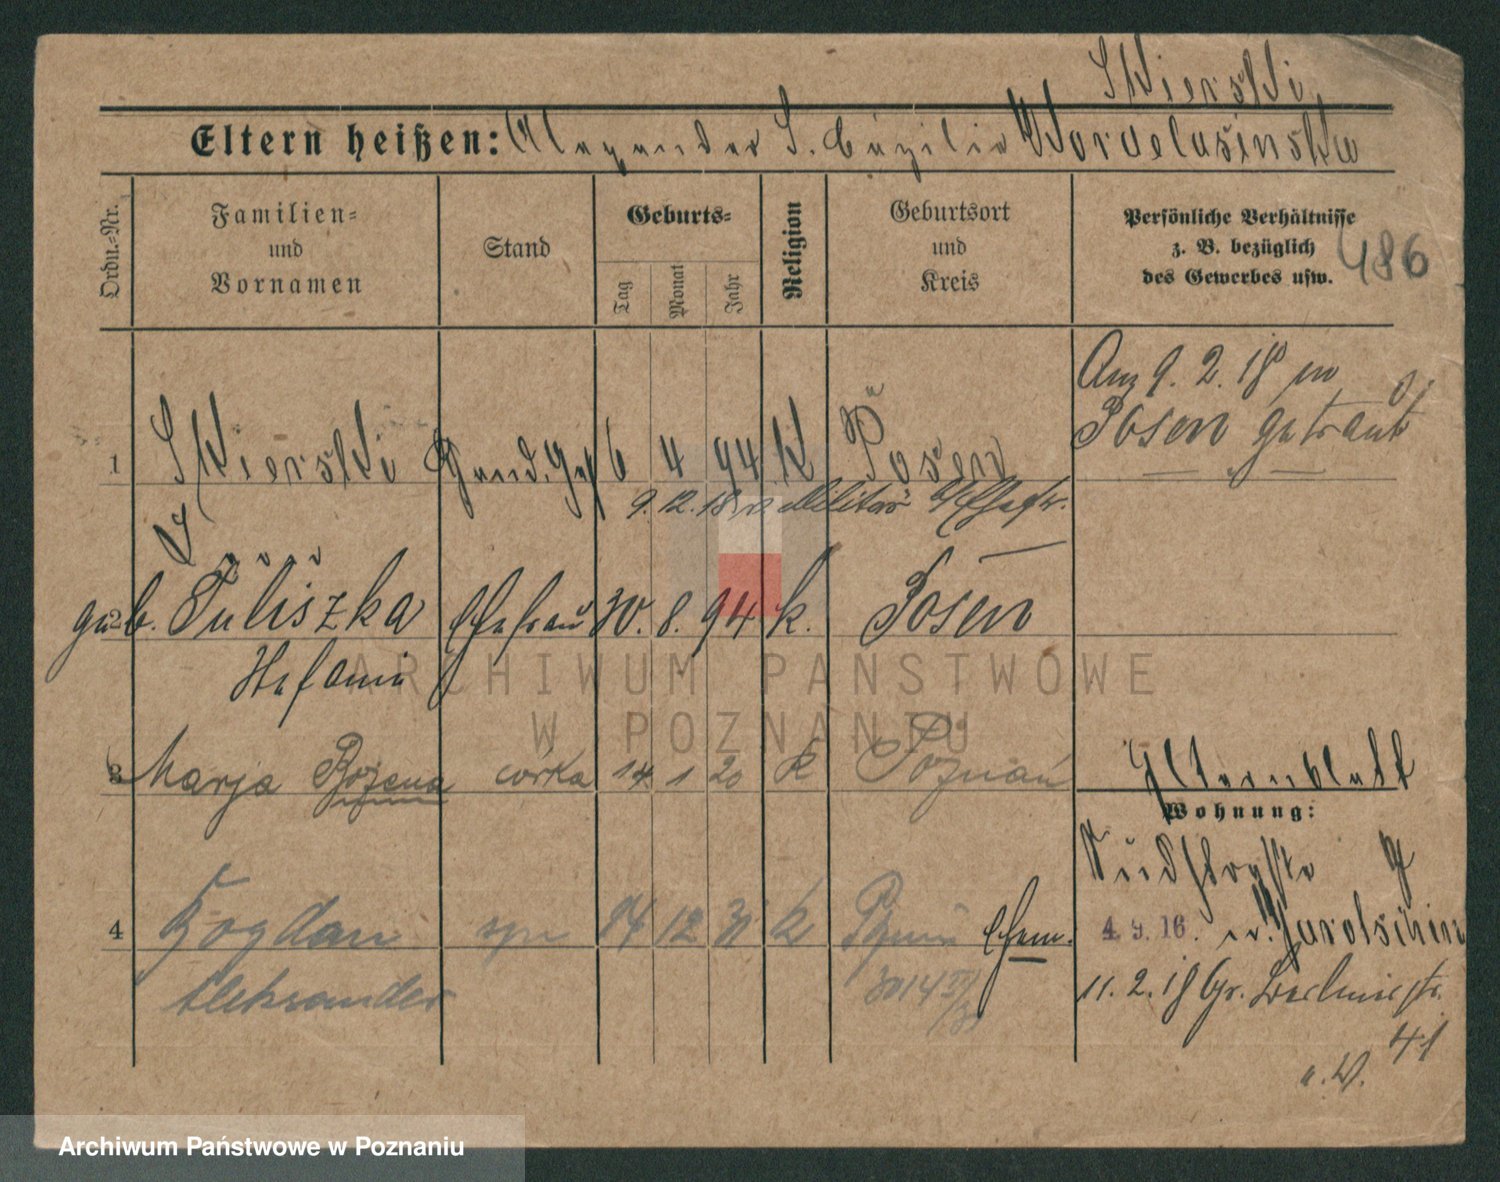 Skierski
Eltern heißen: Alexander S. Cäzilie
486
Ordn.=Nr.
Familien=
und
Vornamen
Stand
Geburts=
Tag
Monat
Jahr
Religion
Geburtsort
und
Kreis
Persönliche Verhältnisse
z. B. bezüglich
des Gewerbes usw.
Am 9. 2. 18 in
Posen getraut
1 Skierski 6 4 94 K Posen
9. 12. 18 v. Militär
2 geb. Tuliszka Ehefrau 30. 8. 94 k. Posen
Stefanie
3 Marja Bożena córka 14 1 20 k Poznań
Elternblatt
Wohnung:
4 Bogdan syn 14 12 31 k Ehem.
Aleksander
4. 9. 16. n. Jarotschin
11. 2. 18 Gr. Berlinerstr.
41
u. W.
ARCHIWUM PAŃSTWOWE
W POZNANIU
Archiwum Państwowe w Poznaniu